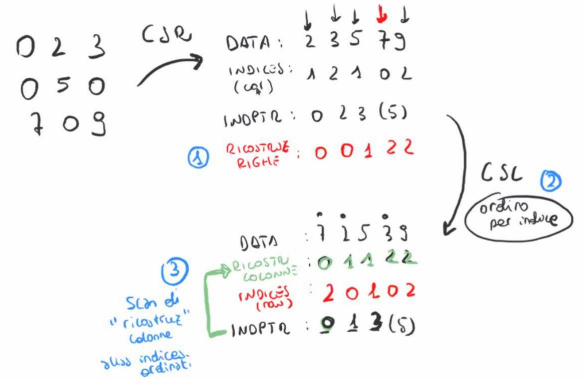 0 2 3
0 5 0
7 0 9
CSR
DATA: 2 3 5 7 9
INDICES: 1 2 1 0 2
(col)
INDPTR: 0 2 3 (5)
1
RICOSTRUE RIGHE: 0 0 1 2 2
CSC
2
ordino
per indice
DATA: 7 2 5 3 9
RICOSTR COLONNE: 0 1 1 2 2
INDICES (row): 2 0 1 0 2
INDPTR: 0 1 3 (5)
3
Scan di
"ricostruz"
colonne
indices
ordinati